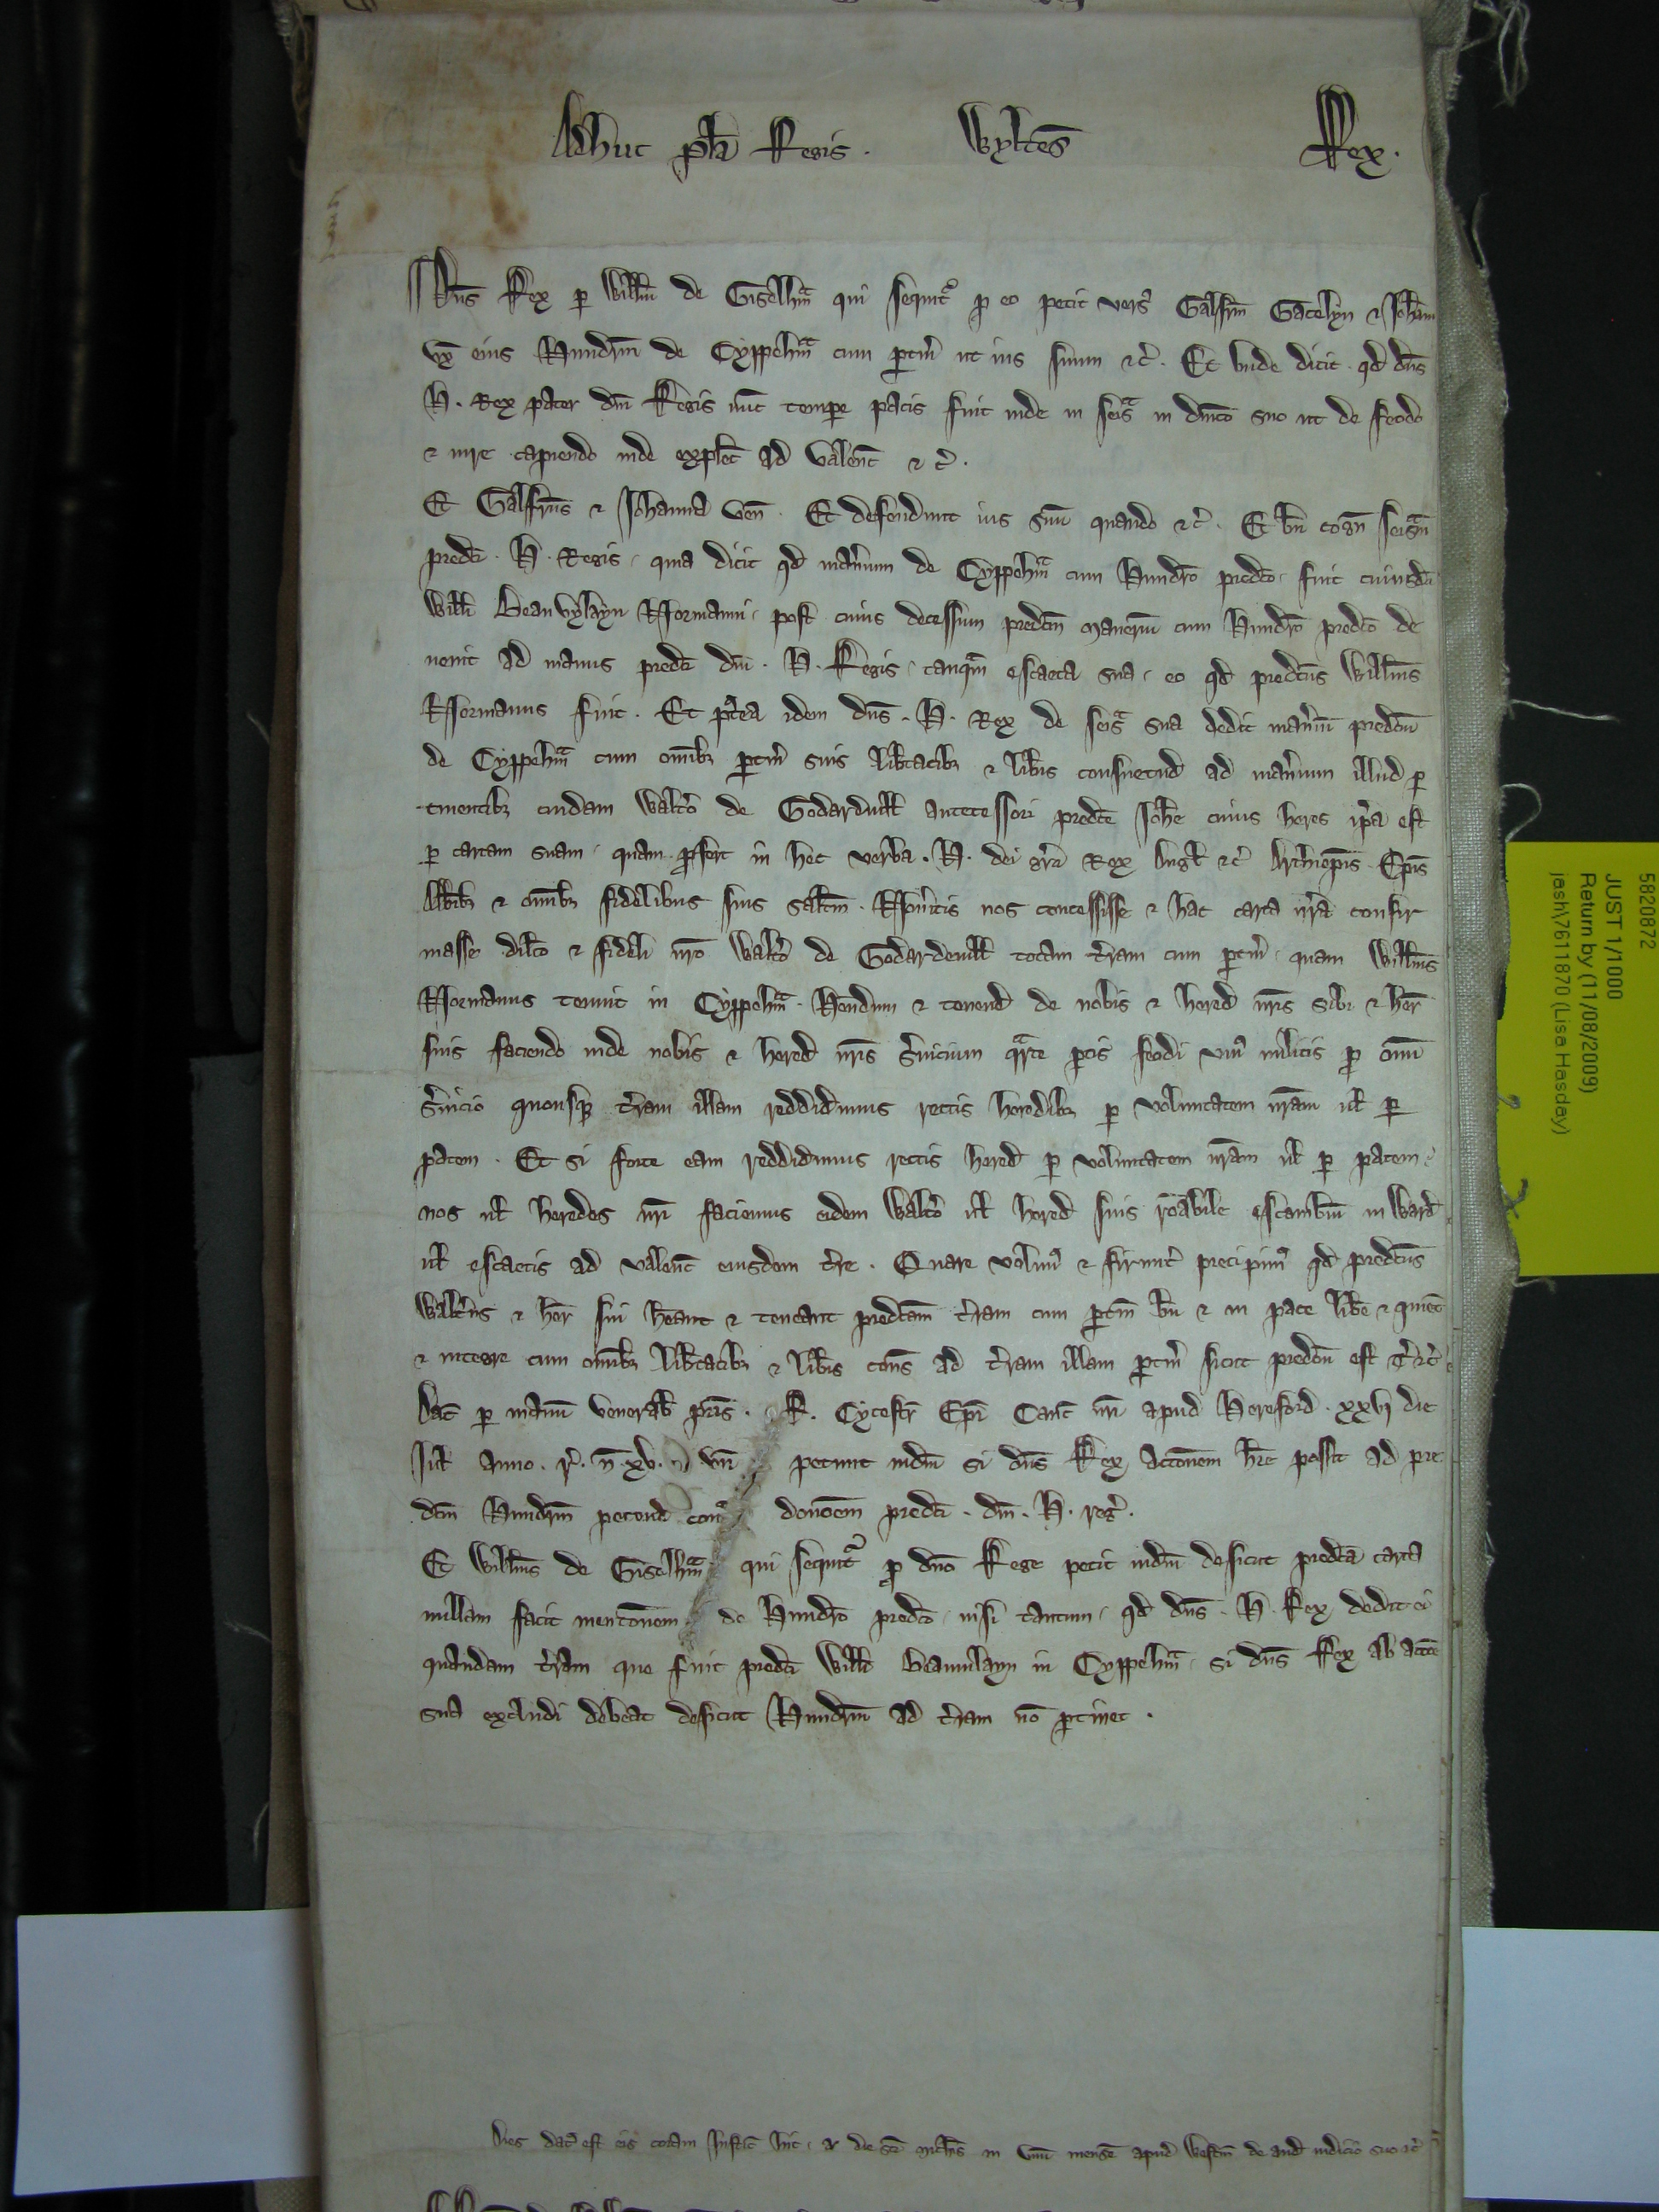 Adhuc pl̄a Regis. Wyltes̄ Rex.
Dn̄s Rex p Willm̄ de Giselhm̄ qui sequit᷑ p eo petit vers᷒ Galfrm̄ Gacelyn & Joh̄am
vx̄ eius Hundrm̄ de Cyppehm̄ cum ptin̄ ut ius suum &c̄. Et unde dicit qd dn̄s
H. Rex pater dn̄i Regis nūc tempe pacis fuit inde in seis̄a in dn̄ico suo ut de feodo
& iure capiendo inde explec̄ ad valenc̄ & c̄.
Et Galfrus̄ & Johanna ven̄. Et defendunt ius suū quando &c̄. Et bn̄ cogn̄ seisin̄
predc̄i. H. Regis. quia dicit qd man̄ium de Cyppehm̄ cum Hundr̄o predc̄o fuit cuiusdā
Willi Beauvylayn Normanni. post cuius decessum predcm̄ Maneriū cum Hundr̄o predc̄o de
uenit ad manus predc̄i dn̄i. H. Regis. tanqm̄ escaeta sua. eo qd predc̄us Willm̄s
Normannus fuit. Et pt̄ea idem dn̄s. H. Rex de seis̄a sua dedit man̄iū predcm̄
de Cyppehm̄ cum om̄ib; ptin̄ suis lib̄tatib; & lib̄is consuetud̄ ad man̄ium illud p
tinentib; cuidam Walt̄o de Godardvill̄ antecessori predc̄e Joh̄e cuius heres ip̄a est
p cartam suam. quam pfert in hec verba. H. dei gr̄a Rex Angl̄ &c̄ Archiep̄is Ep̄is
Abb̄ib; & om̄ib; fidelibus suis saltm̄. Nov̄itis nos concessisse & hac carta nr̄a confir
masse dil̄co & fideli nr̄o Walt̄o de Godardeuill̄ totam t̄ram cum ptin̄. quam Willm̄s
Normanus tenuit in Cyppehm̄. Hendum & tenend̄ de nobis & hered̄ nr̄is sibi & her̄
suis faciendo inde nobis & hered̄ nr̄is s̄uicium qarte ptis feodi vni᷒ militis p om̄i
s̄uicio quousq; t̄ram illam reddidimus rectis heredib; p voluntatem nr̄am ul̄ p
pacem. Et si forte eam reddidimus rectis hered̄ p voluntatem nr̄am ul̄ p pacem
nos ul̄ heredes nr̄i faciemus eidem Walt̄o ul̄ hered̄ suis rōabile escambiū in Ward̄
ul̄ escaetis ad valenc̄ eiusdem t̄re. Quare volum᷒ & firmit̄ precipim᷒ qd predc̄us
Walt̄us & her̄ sui heant & teneant predcam̄ t̄ram cum ptin̄ bn̄ & in pace lib̄e & quiete
& integre cum om̄ib; lib̄tatib; & lib̄is cons̄ ad t̄ram illam ptin̄ sicut predcm̄ est &c̄
Dat̄ p manū venerab̄ pr̄is. R. Cycestr̄ Ep̄i Canc̄ nr̄i apud Hereford. xxvj die
Jul̄ anno. r̄. n̄. xv. Vn̄ petunt iudm̄ si dn̄s Rex accōnem h̄re possit ad pre
dcm̄ Hundrm̄ petend̄ donōem predc̄i. dn̄i. H. reḡ.
Et Willm̄s de Giselhm̄ qui sequit᷑ p dn̄o Rege petit iudm̄ desicut predc̄a carta
nullam facit mencōnem de Hundr̄o predc̄o. nisi tantum. qd dn̄s. H. Rex dedit ei
quandam t̄ram que fuit predc̄i Will̄i Beauvilayn in Cyppehm̄. si dn̄s Rex ab acc̄oe
sua excludi debeat desicut Hundrm̄ ad t̄ram nō ptinet.
Dies dat᷒ est eis coram Justic̄ hic a die sc̄i Mich̄is in unū mensē apud Westm̄ de aud̄ iudicio suo &c̄
5820872
JUST 1/1000
Return by (11/08/2009)
jash\7611870 (Lisa Hasday)